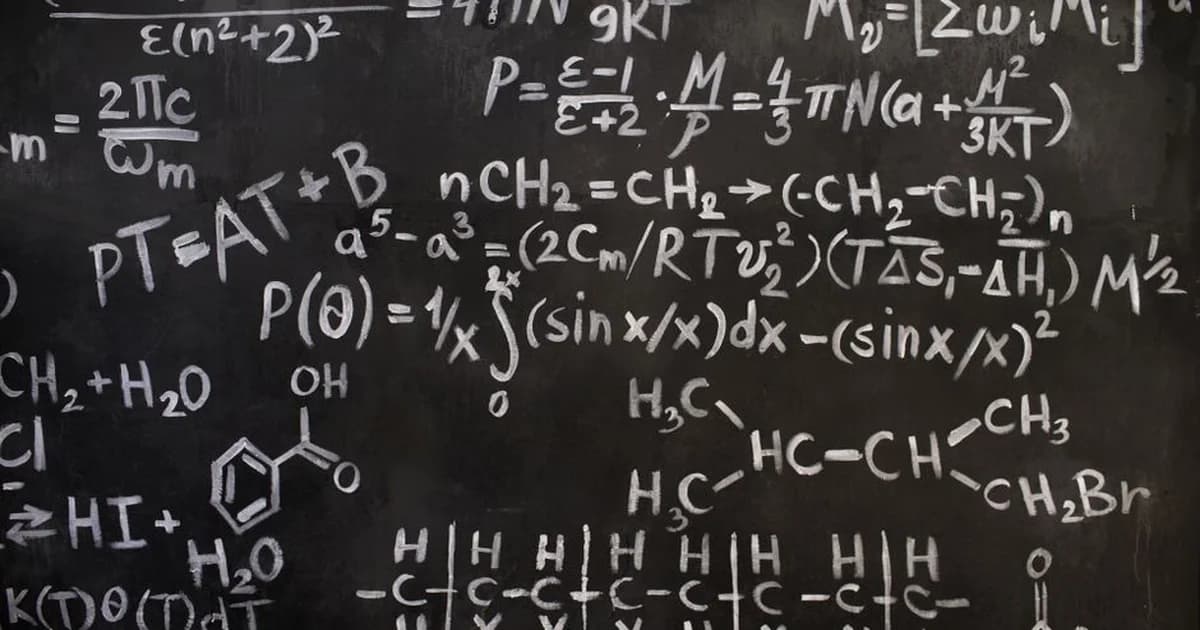 ε(n²+2)² = 4πN 9KT Mᵥ=[Σωᵢ Mᵢ]
P = (ε-1)/(ε+2) · M/P = 4/3 πN(a + M²/3KT)
m = 2πc/ωₘ
nCH₂=CH₂→(-CH₂-CH₂-)ₙ
PT=AT+B
a⁵-a³=(2Cₘ/RTv₂²)(TΔS₁-ΔH₁) M^½
)
P(θ)=1/x ∫₀²ˣ (sin x/x)dx-(sinx/x)²
CH₂+H₂O
OH
O
H₃C
HC-CH
CH₃
H₃C
CH₂Br
Cl
⇄HI+
H₂O
H H H H H H H H
-C-C-C-C-C-C-C-C-
O
K(T)θ(T)dT